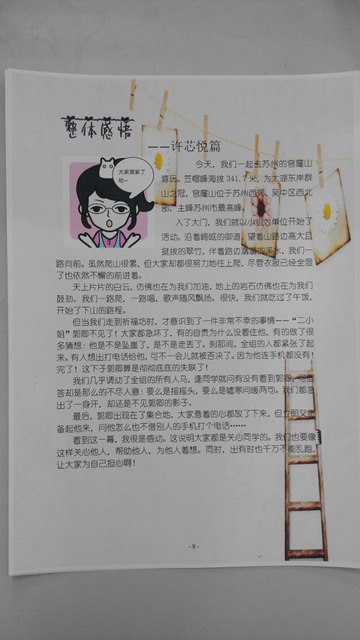 整体感悟
——许芯悦篇
大家原谅了
啦~
今天，我们一起去苏州的穹窿山
游玩。笠帽峰海拔 341.7 米，为太湖东岸群
山之冠。穹窿山位于苏州西郊，吴中区西北
部，主峰苏州市最高峰。
入了大门，我们就以小组为单位开始了
活动。沿着崎岖的御道，望着山路边高大且
挺拔的翠竹，伴着路边潺潺的溪水，我们一
路向前。虽然爬山很累，但大家都很努力地往上爬，尽管衣服已经全湿
了也依然不懈的前进着。
天上片片的白云，仿佛也在为我们加油，地上的岩石仿佛也在为我们
鼓劲。我们一路爬，一路唱，歌声随风飘扬。很快，我们就吃过了午饭，
开始了下山的路程。
但当我们走到祈福坊时，才意识到了一件非常不幸的事情——“二小
姐”郭卿不见了！大家都急坏了，有的自责为什么没看住他，有的做了很
多猜想：他是不是坠崖了，是不是走丢了。刹那间，全组的人都紧张了起
来。有人想出打电话给他，可不一会儿就被否决了。因为他连手机都没有！
完了！这下子郭卿算是彻彻底底的失联了！
我们几乎调动了全组的所有人马，逢同学就问有没有看到郭卿，可回
答却是那么的不尽人意：要么是摇摇头，要么是嘘寒问暖两句。我们都急
出了一身汗，却还是不见郭卿的影子。
最后，郭卿出现在了集合地，大家悬着的心都放了下来，但立即又责
备起他来，问他怎么也不借别人的手机打个电话……
看到这一幕，我很是感动。这说明大家都是关心同学的。我们也要像
这样关心他人，帮助他人，为他人着想。同时，出有时也千万不能乱跑，
让大家为自己担心啊！
-9-